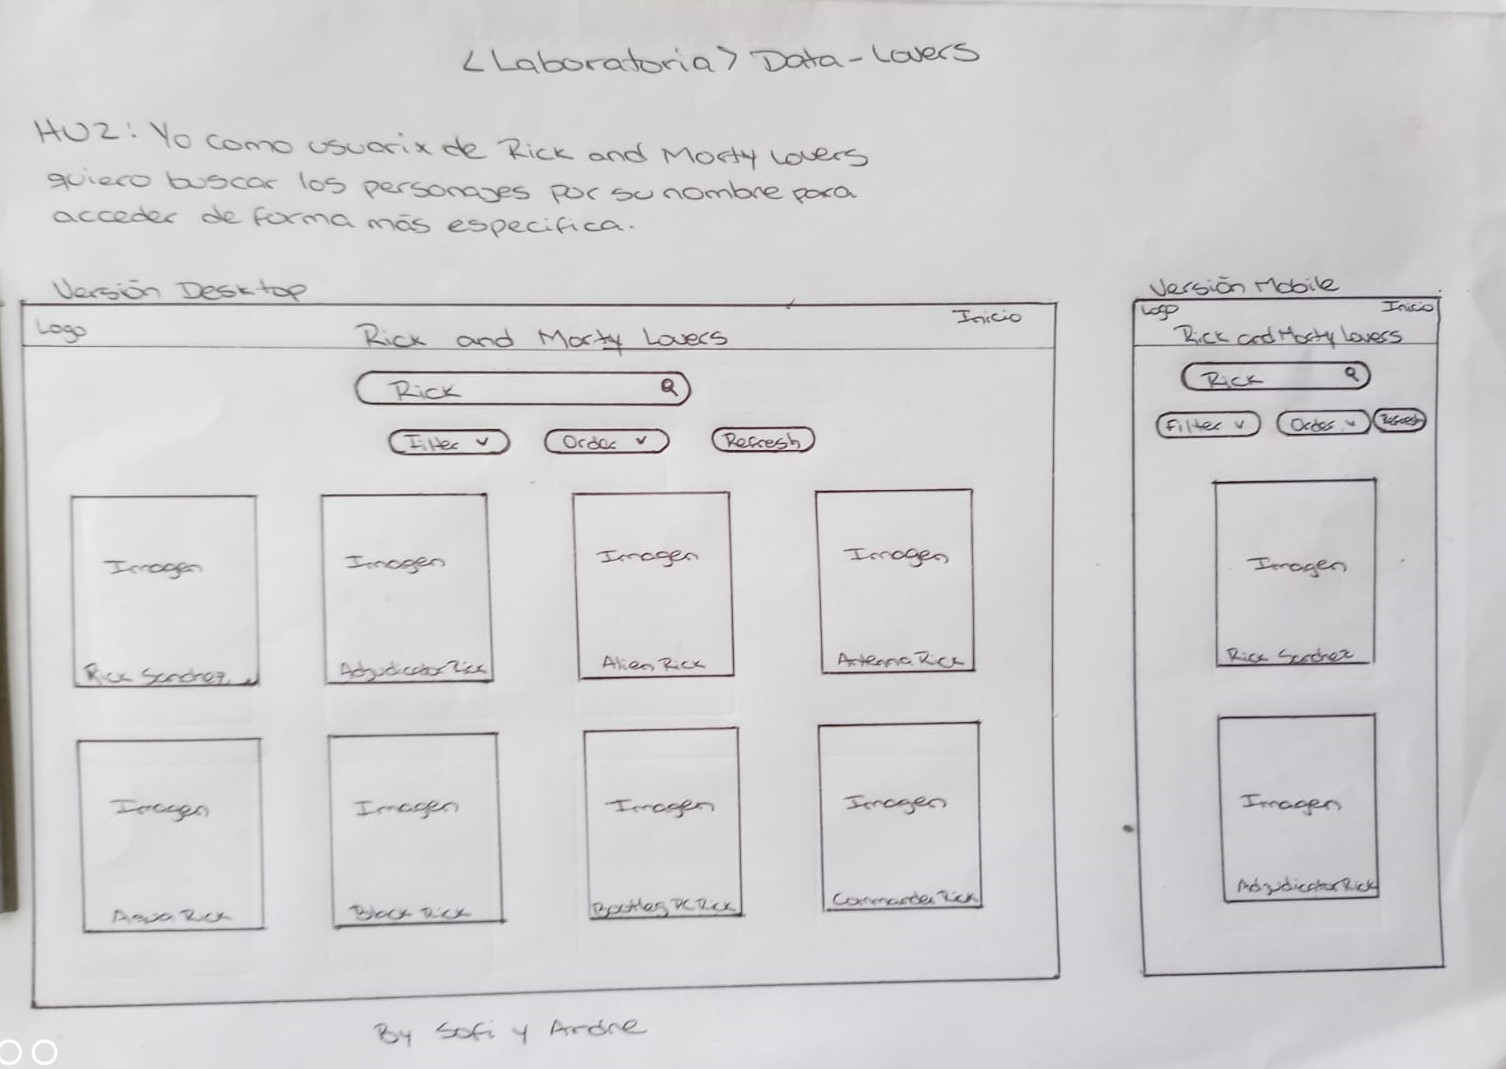 <Laboratoria> Data-Lovers
HU2: Yo como usuarix de Rick and Morty Lovers
quiero buscar los personajes por su nombre para
acceder de forma más especifica.
Versión Desktop
Logo
Rick and Morty Lovers
Inicio
Rick
Filter
Order
Refresh
Imagen
Imagen
Imagen
Imagen
Rick Sanchez
Adjudicator Rick
Alien Rick
Antenna Rick
Imagen
Imagen
Imagen
Imagen
Aqua Rick
Black Rick
Bootleg PC Rick
Commander Rick
Versión Mobile
Logo
Inicio
Rick and Morty Lovers
Rick
Filter
Order
Refresh
Imagen
Rick Sanchez
Imagen
Adjudicator Rick
By Sofi y Andre